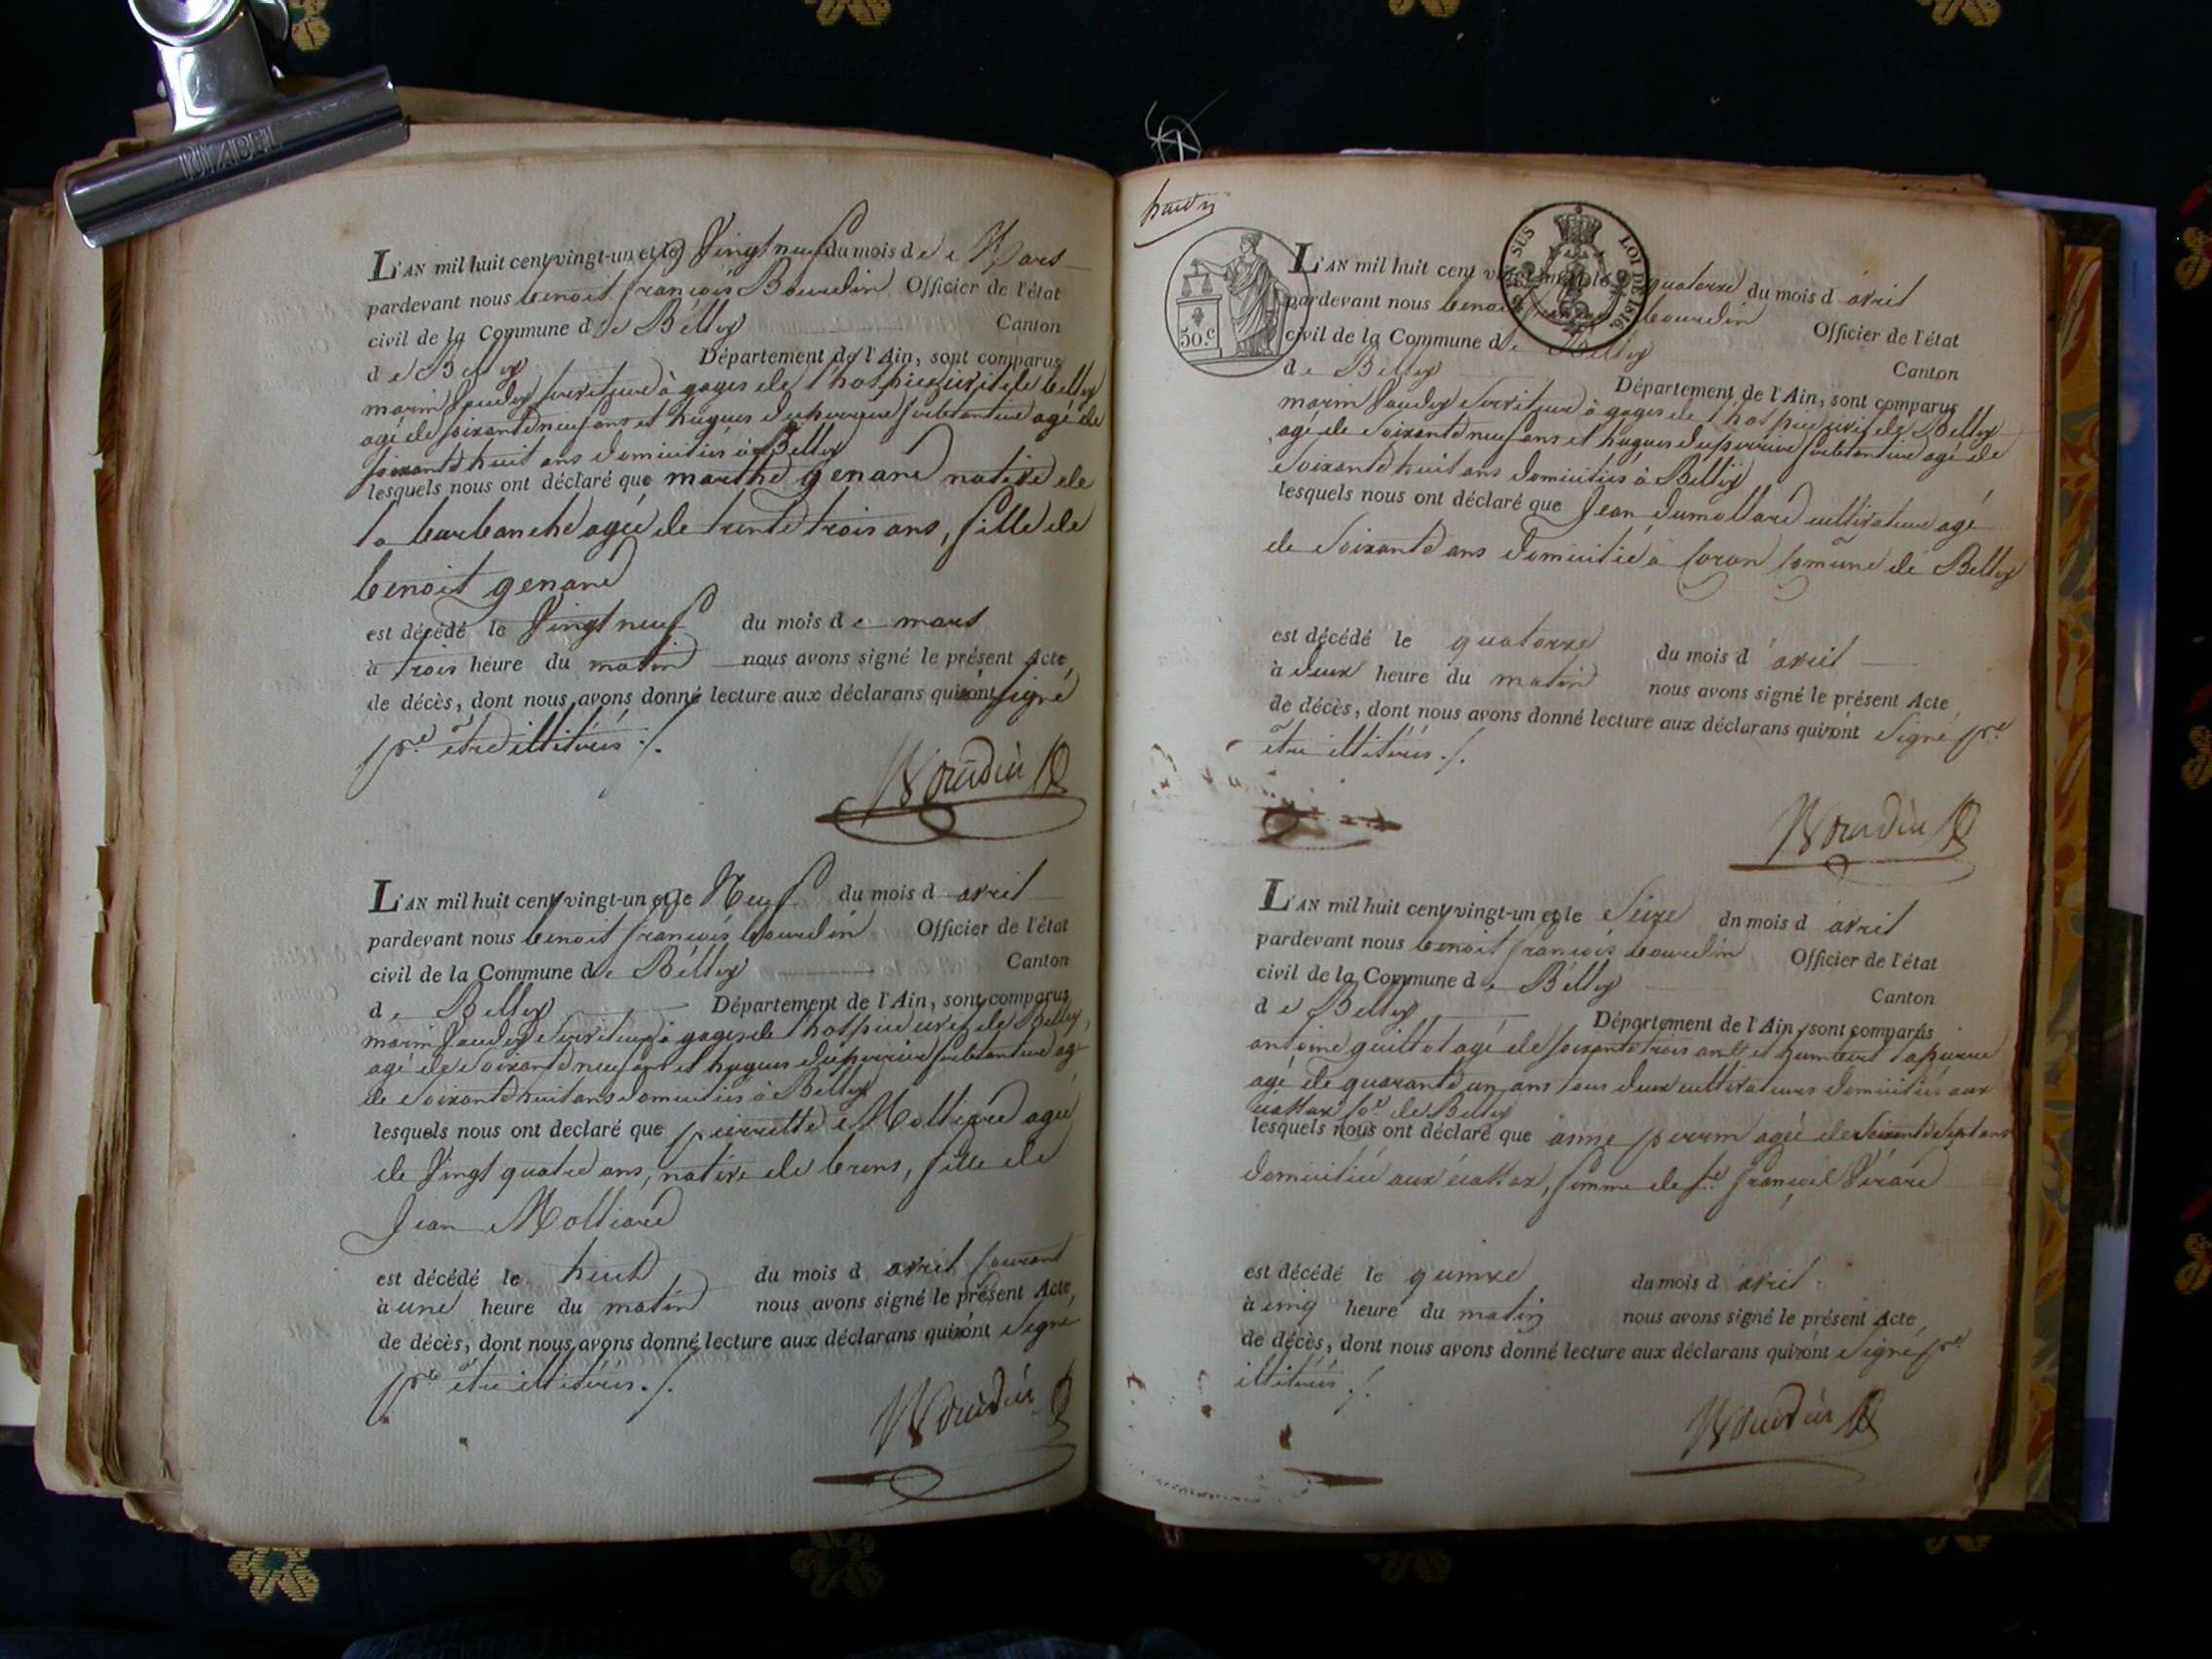 DIADEL
L'AN mil huit cent vingt-un et le Vingt neuf du mois d e Mars
pardevant nous benoit françois Bourdin Officier de l'état
civil de la Commune d e Belley Canton
d e Belley Département de l'Ain, sont comparus
marin serviteur à gages de l'hospice civil de belley
agé de soixante neuf ans et hugues duperrier substantive agé de
soixante huit ans domiciliés à Belley
lesquels nous ont déclaré que marthe genard native de
la burbanche agée de trente trois ans, fille de
benoit genard
est décédé le Vingt neuf du mois d e mars
à trois heure du matin nous avons signé le présent Acte,
de décès, dont nous avons donné lecture aux déclarans qui n'ont signé
pr. être illitérés ./.
Bourdin
L'AN mil huit cent vingt-un et le Neuf du mois d avril
pardevant nous benoit françois bourdin Officier de l'état
civil de la Commune d e Belley Canton
d e Belley Département de l'Ain, sont comparus
marin serviteur à gages de l'hospice civil de Belley,
agé de Soixante neuf ans et hugues duperrier agé
de Soixante huit ans domiciliés à Belley
lesquels nous ont declaré que pierrette Molliard agée
de Vingt quatre ans, native de brens, fille de
Jean Molliard
est décédé le huit du mois d avril courant
à une heure du matin nous avons signé le présent Acte,
de décès, dont nous avons donné lecture aux déclarans qui n'ont Signé
pr. être illitérés ./.
Bourdin
50.c
SUS LOI DE 1816.
L'AN mil huit cent vingt-un et le quatorze du mois d avril
pardevant nous benoit françois bourdin Officier de l'état
civil de la Commune d e Belley Canton
d e Belley Département de l'Ain, sont comparus
marin serviteur à gages de l'hospice civil de Belley
agé de Soixante neuf ans et hugues duperrier agé de
Soixante huit ans domiciliés à Belley
lesquels nous ont déclaré que Jean dumollard cultivateur agé
de Soixante ans domicilié à Coron Comune de Belley
est décédé le quatorze du mois d avril
à deux heure du matin nous avons signé le présent Acte,
de décès, dont nous avons donné lecture aux déclarans qui n'ont Signé pr.
être illitérés ./.
Bourdin
L'AN mil huit cent vingt-un et le Seize dn mois d avril
pardevant nous benoit françois bourdin Officier de l'état
civil de la Commune d e Belley Canton
d e Belley Département de l'Ain, sont comparus
antoine guillot agé de soixante trois ans et humbert lapierre
agé de quarante un ans tous deux cultivateurs domiciliés aux
écassaz de Belley
lesquels nous ont déclaré que anne perrin agée de Soixante Sept ans
domiciliée aux écassaz, femme de françois Vérard
est décédé le quinze du mois d avril
à cinq heure du matin nous avons signé le présent Acte,
de décès, dont nous avons donné lecture aux déclarans qui n'ont Signé pr.
illitérés ./.
Bourdin